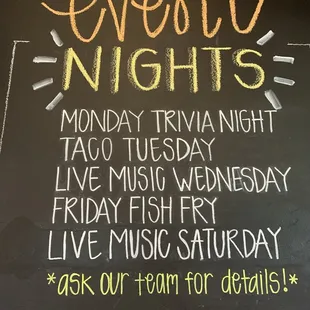 event
NIGHTS
MONDAY TRIVIA NIGHT
TACO TUESDAY
LIVE MUSIC WEDNESDAY
FRIDAY FISH FRY
LIVE MUSIC SATURDAY
*ask our team for details!*